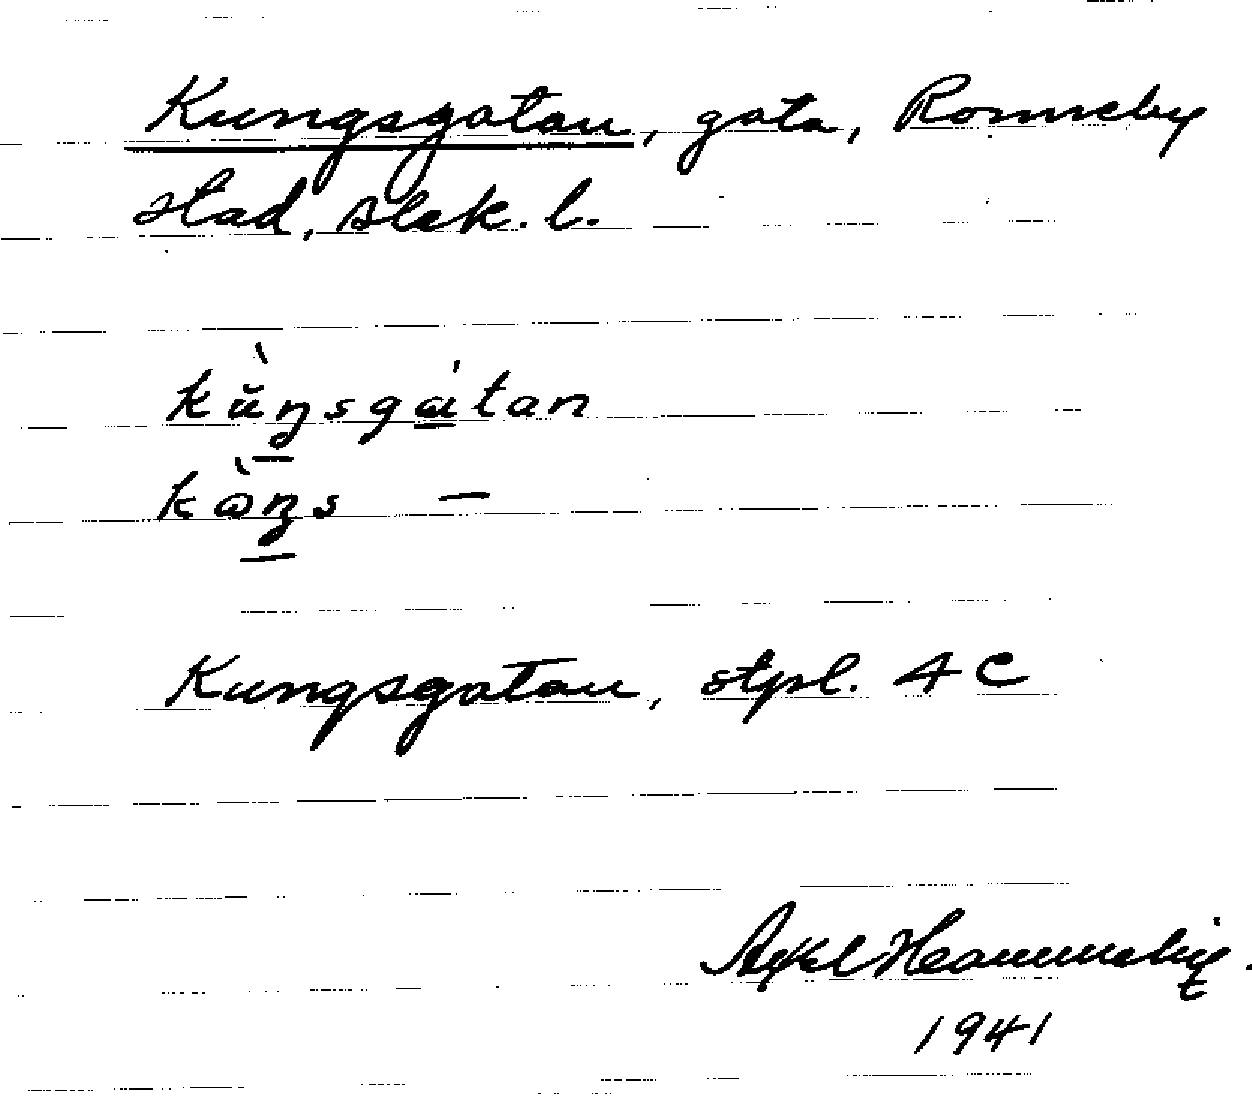 Kungsgatan, gata, Ronneby
stad, Blek. l.
kŭ̀ŋsgátan
kàŋs —
Kungsgatan, stpl. 4 C
Axel
1941